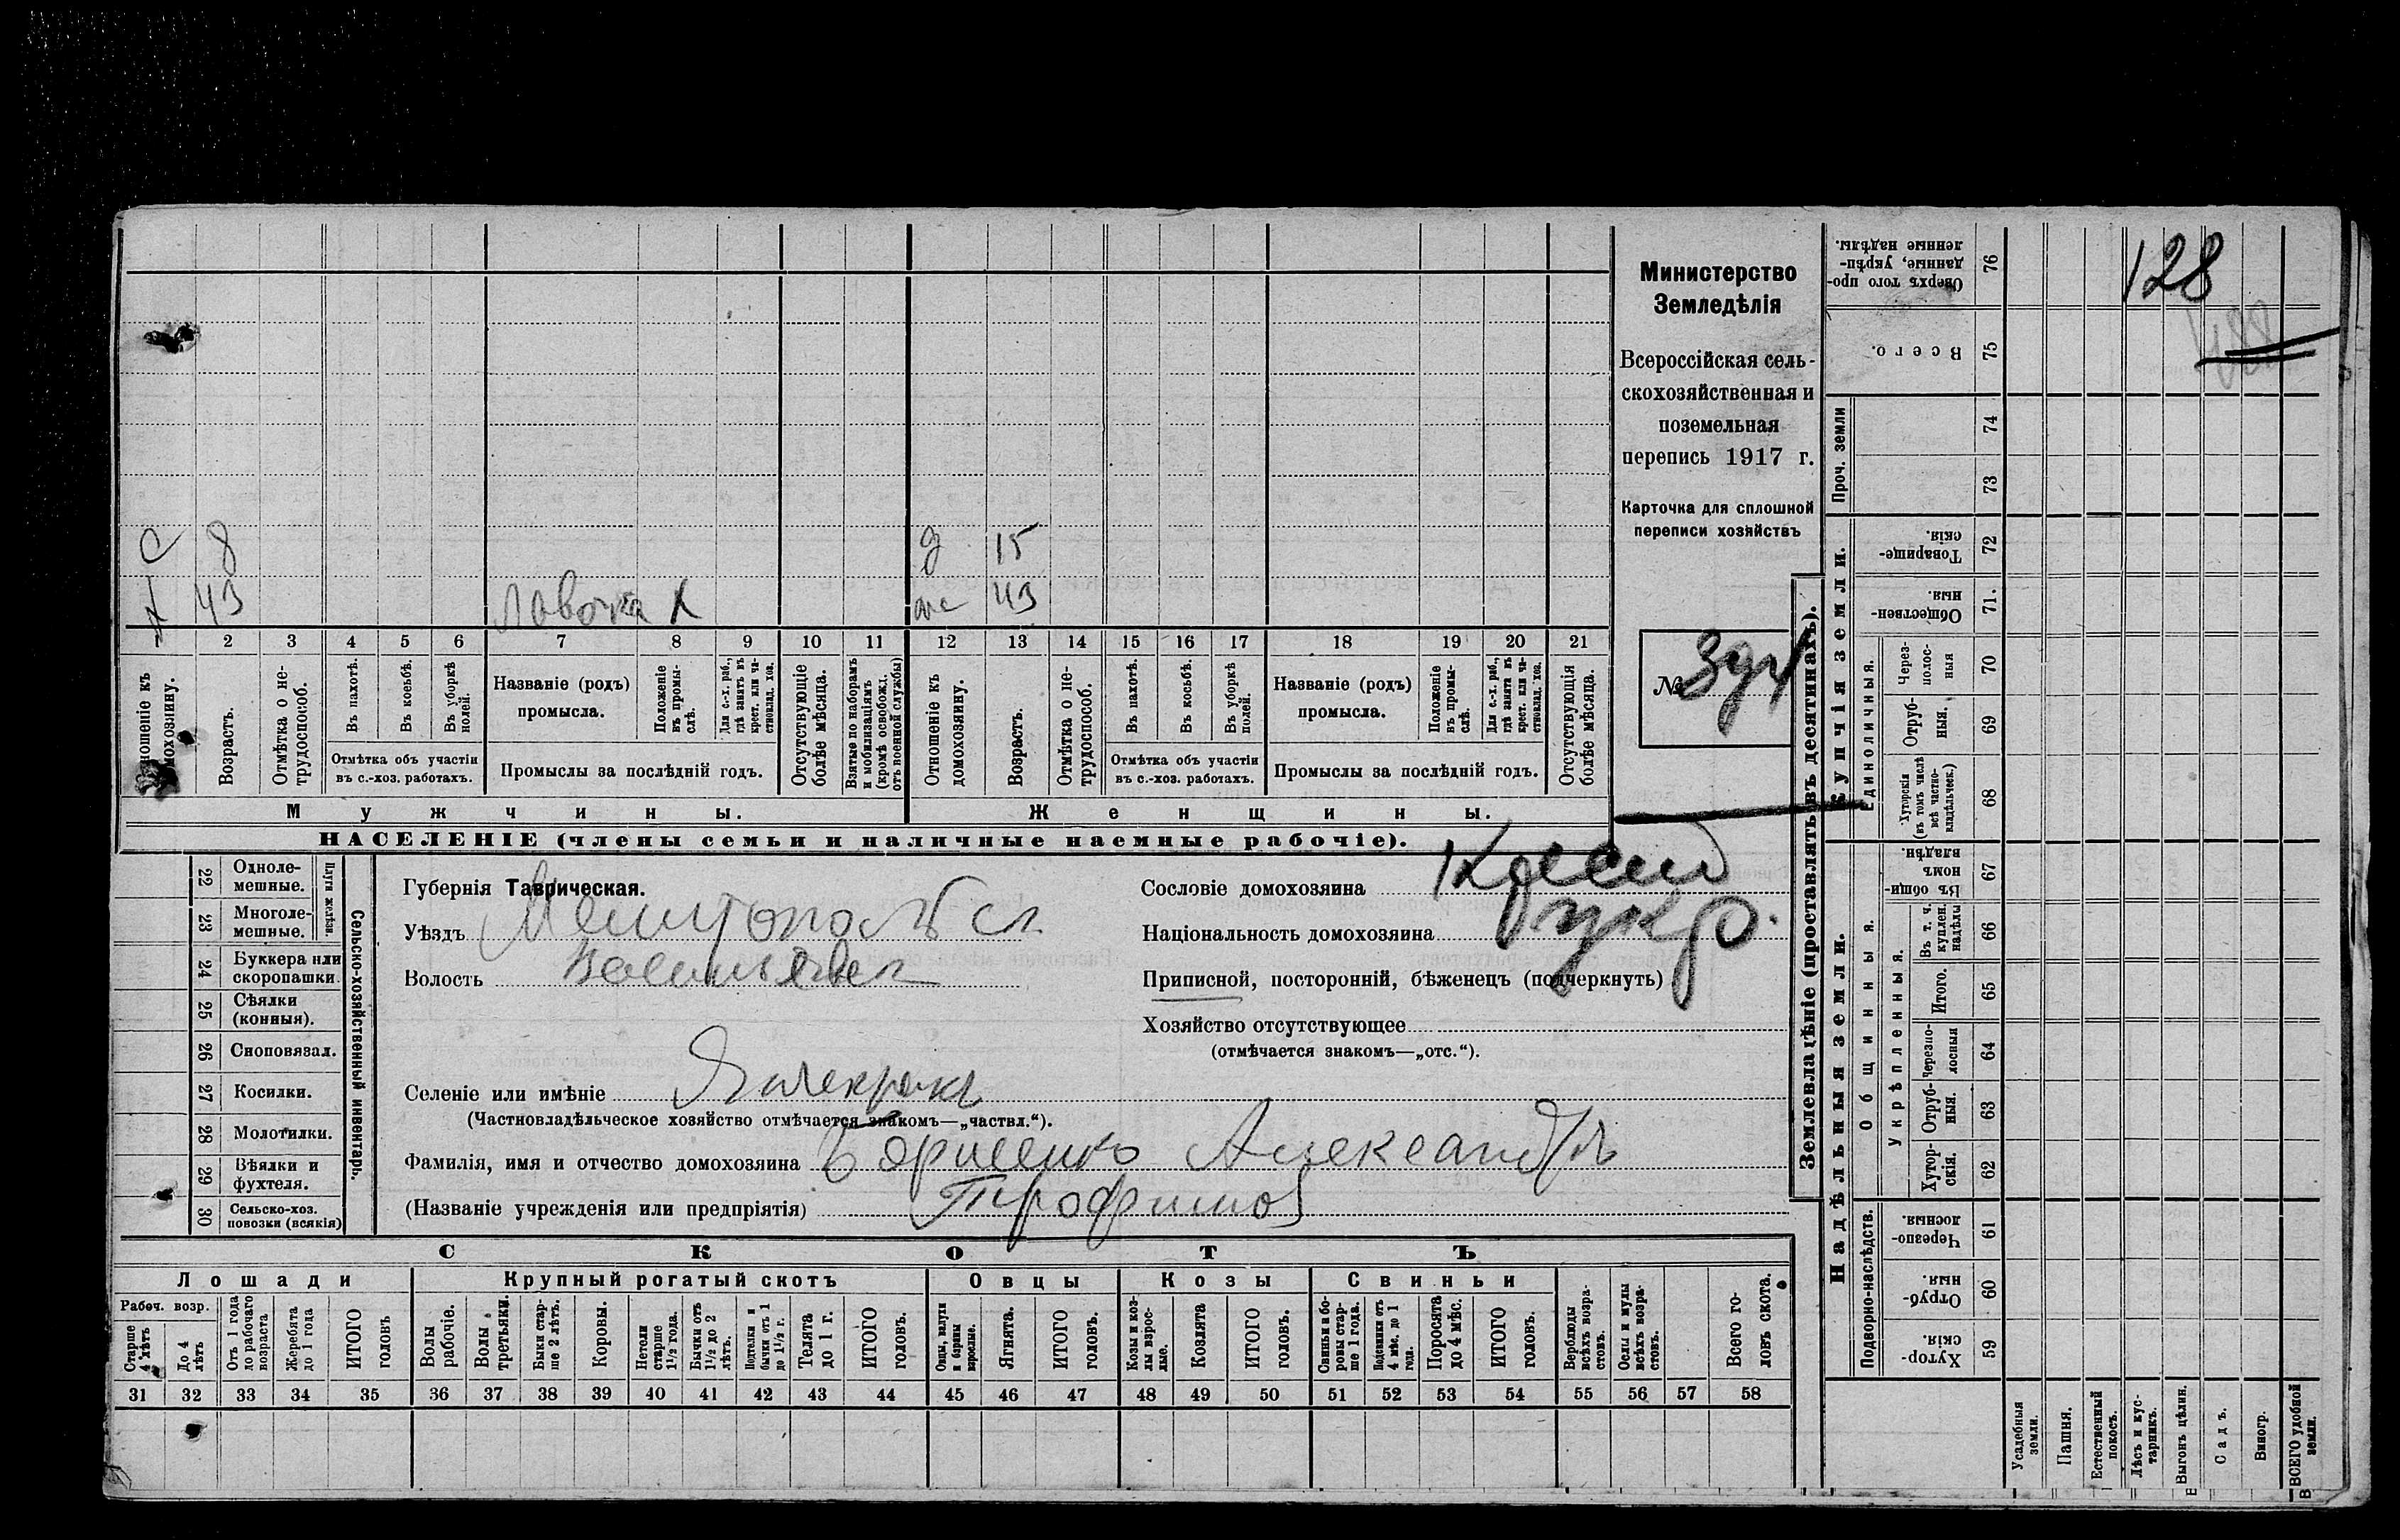 С 8 д 15
Х 43 лавочка Х ж 43
1 2 3 4 5 6 7 8 9 10 11 12 13 14 15 16 17 18 19 20 21
Отношеніе къ домохозяину.
Возрастъ.
Отмѣтка о нетрудоспособ.
Въ пахотѣ.
Въ косьбѣ.
Въ уборкѣ полей.
Отмѣтка объ участіи
въ с.-хоз. работахъ.
Названіе (родъ)
промысла.
Положеніе въ промыслѣ.
Для с.-х. раб., гдѣ занятъ въ крест. или частновлад. хоз.
Промыслы за послѣдній годъ.
Отсутствующіе болѣе мѣсяца.
Взятые по наборамъ и мобилизаціямъ (кромѣ освобожд. отъ военной службы)
Отношеніе къ домохозяину.
Возрастъ.
Отмѣтка о нетрудоспособ.
Въ пахотѣ.
Въ косьбѣ.
Въ уборкѣ полей.
Отмѣтка объ участіи
въ с.-хоз. работахъ.
Названіе (родъ)
промысла.
Положеніе въ промыслѣ.
Для с.-х. раб., гдѣ занята въ крест. или частновлад. хоз.
Промыслы за послѣдній годъ.
Отсутствующія болѣе мѣсяца.
Мужчины.
Женщины.
НАСЕЛЕНІЕ (члены семьи и наличные наемные рабочіе).
Министерство
Земледѣлія
Всероссійская сель-
скохозяйственная и
поземельная
перепись 1917 г.
Карточка для сплошной
переписи хозяйствъ
№ 394
22 Одноле-
мешные.
23 Многоле-
мешные.
Плуги желѣзн.
24 Буккера или
скоропашки.
25 Сѣялки
(конныя).
26 Сноповязал.
27 Косилки.
28 Молотилки.
29 Вѣялки и
фухтеля.
30 Сельско-хоз.
повозки (всякія)
Сельско-хозяйственный инвентарь.
Губернія Таврическая.
Уѣздъ
Волость
Селеніе или имѣніе
(Частновладѣльческое хозяйство отмѣчается знакомъ—„частвл.“).
Фамилія, имя и отчество домохозяина Борисенко Александръ
(Названіе учрежденія или предпріятія) Трофимов
Сословіе домохозяина
Національность домохозяина укр.
Приписной, посторонній, бѣженецъ (подчеркнуть)
Хозяйство отсутствующее
(отмѣчается знакомъ—„отс.“).
СКОТЪ
Лошади
Крупный рогатый скотъ
Овцы
Козы
Свиньи
Рабоч. возр.
Старше 4 лѣтъ
До 4 лѣтъ
Отъ 1 года до рабочаго возраста
Жеребята до 1 года
ИТОГО головъ
Волы рабочіе.
Волы третьяки.
Быки старше 2 лѣтъ.
Коровы.
Нетели старше 1½ года.
Бычки отъ 1½ до 2 лѣтъ.
Подтелки и бычки отъ 1 до 1½ г.
Телята до 1 г.
ИТОГО головъ.
Овцы, валухи и бараны взрослые.
Ягнята.
ИТОГО головъ.
Козы и козлы взрослые.
Козлята
ИТОГО головъ.
Свиньи и боровы старше 1 года.
Подсвинки отъ 4 мѣс. до 1 года.
Поросята до 4 мѣс.
ИТОГО головъ.
Верблюды всѣхъ возрастовъ.
Ослы и мулы всѣхъ возрастовъ.
Всего головъ скота.
31 32 33 34 35 36 37 38 39 40 41 42 43 44 45 46 47 48 49 50 51 52 53 54 55 56 57 58
Землевладѣніе (проставлять въ десятинахъ).
Купчія земли.
Надѣльныя земли.
128
Сверхъ того проданные, укрѣпленные надѣлы. 76
Всего. 75
Проч. земли
74
73
Товарищескія. 72
Общественныя. 71.
Единоличныя.
Черезполосныя 70
Отрубныя. 69
Хуторскія (въ томъ числѣ всѣ частновладѣльческ.) 68
Общинныя.
Въ общинномъ владѣн. 67
Укрѣпленныя.
Въ т. ч. куплен. надѣлы 66
Итого. 65
Черезполосныя 64
Отрубныя. 63
Хуторскія. 62
Подворно-наслѣдств.
Черезполосныя. 61
Отрубныя. 60
Хуторскія. 59
Усадебныя земли.
Пашня.
Естественный покосъ.
Лѣсъ и кустарникъ.
Выгонъ цѣлин.
Садъ.
Виногр.
ВСЕГО удобной земли.